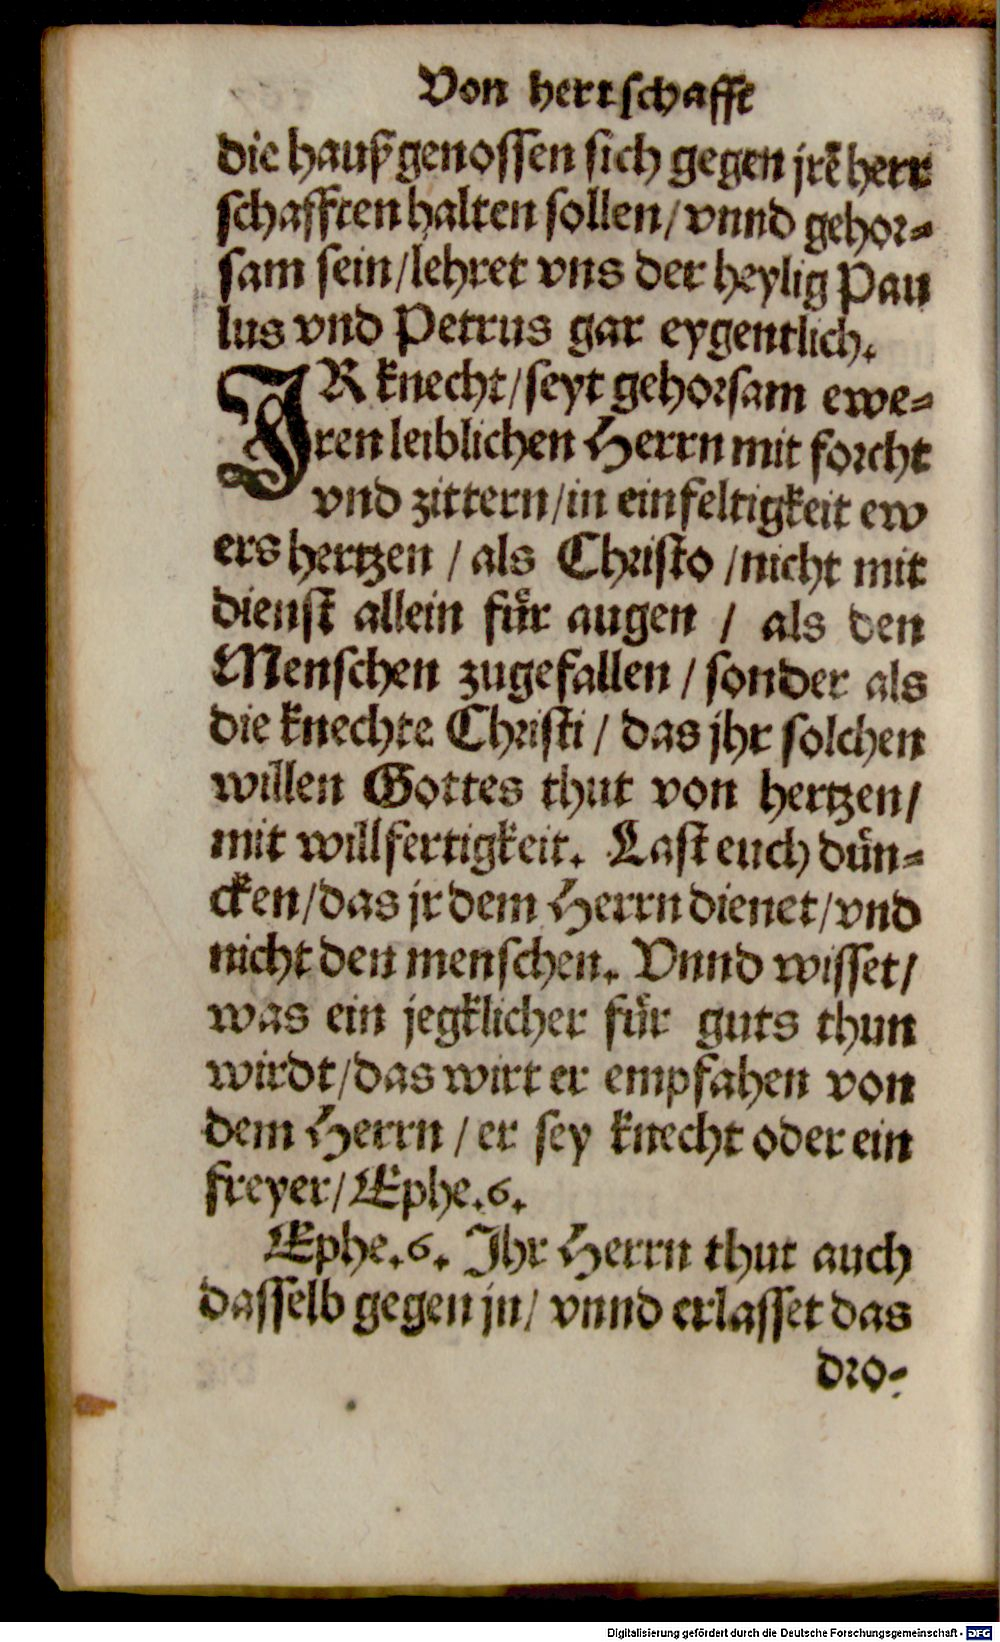 Von herrschafft
die haußgenossen sich gegen jrẽ herr
schafften halten sollen/ vnnd gehor-
sam sein/ lehret vns der heylig Pau
lus vnd Petrus gar eygentlich.
IR knecht/ seyt gehorsam ewe-
ren leiblichen Herrn mit forcht
vnd zittern/ in einfeltigkeit ew
ers hertzen / als Christo / nicht mit
dienst allein fuͤr augen / als den
Menschen zugefallen / sonder als
die knechte Christi / das jhr solchen
willen Gottes thut von hertzen/
mit willfertigkeit. Last euch duͤn-
cken/ das jr dem Herrn dienet/ vnd
nicht den menschen. Vnnd wisset/
was ein jegklicher fuͤr guts thun
wirdt/ das wirt er empfahen von
dem Herrn / er sey knecht oder ein
freyer/ Ephe.6.
Ephe.6. Ihr Herrn thut auch
dasselb gegen jn/ vnnd erlasset das
dro-
Digitalisierung gefördert durch die Deutsche Forschungsgemeinschaft - DFG